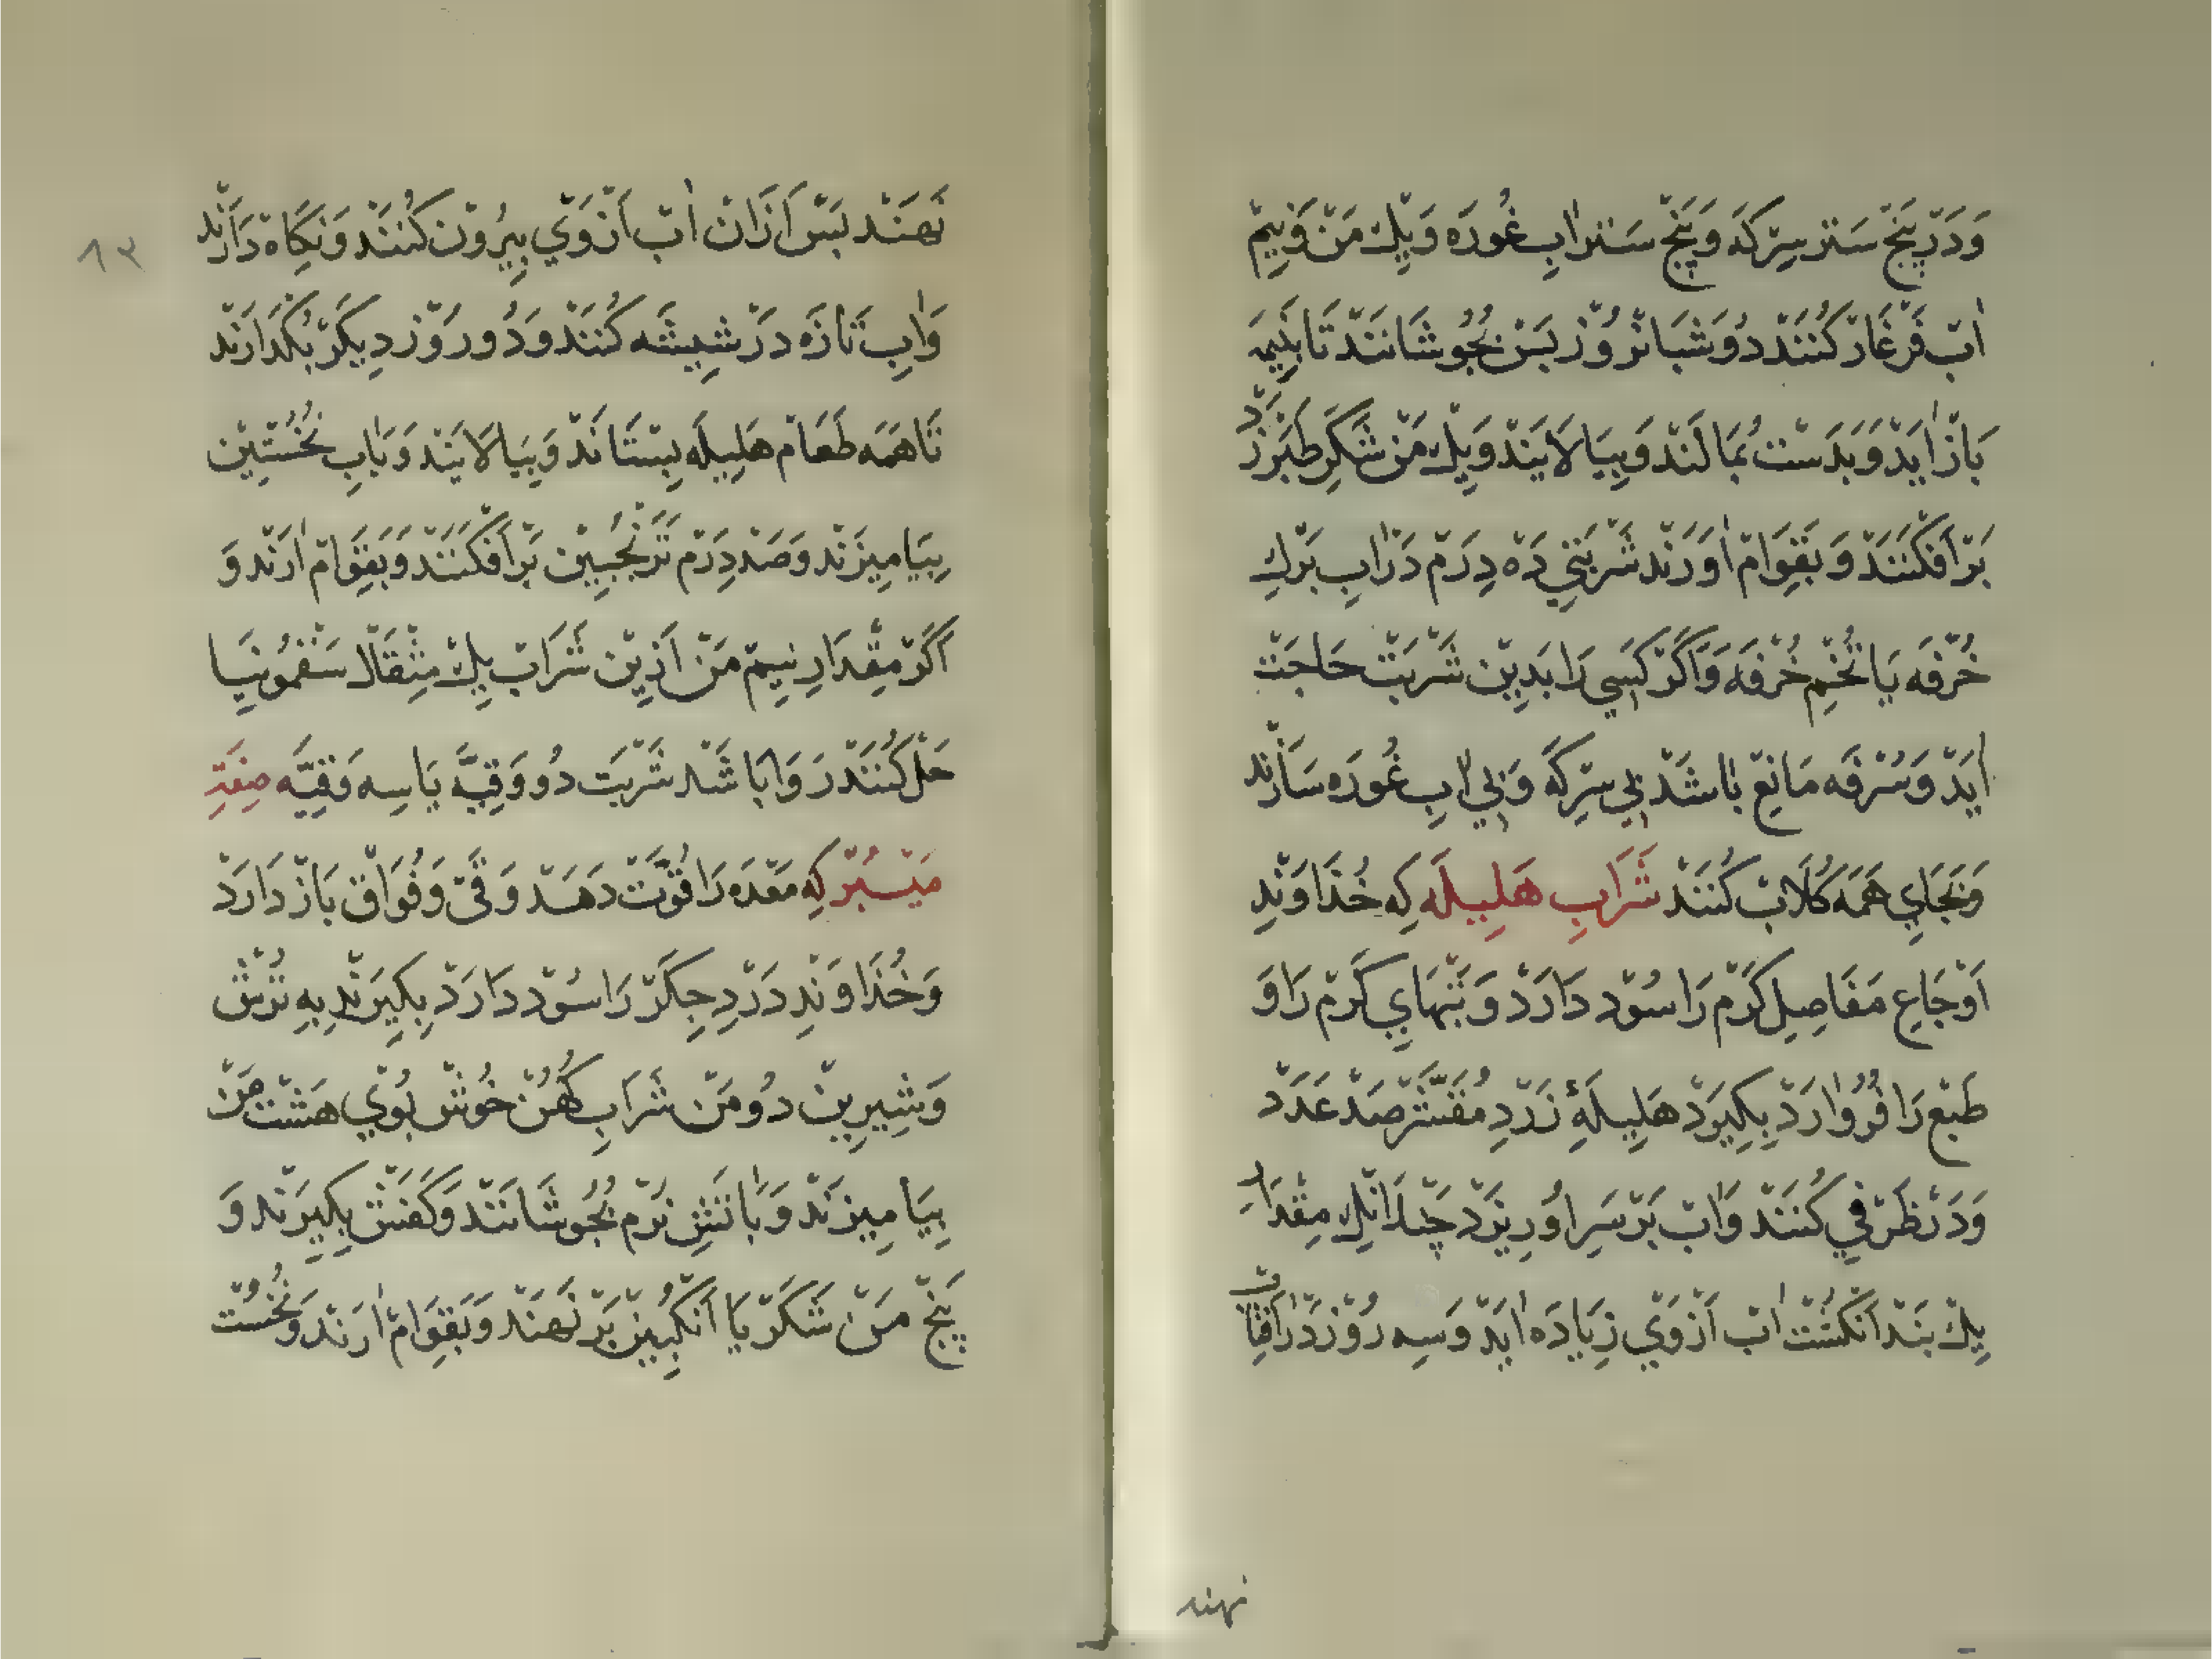 وَدَرْ پَنْجْ سَتير سِرْكَه وَ پَنْجْ سَتير اٰبِ غُورَه وَيِكْ مَنْ وَنِيمْ
اٰبْ فَرْغَارْ كُنَنَدْ دُو شَبَانَرُوزْ بَسْ بِجُوشَانَنَدْ تَا بِنيمَه
بَازْ اٰيَدْ وَبَدَسْتْ بُمَالَنْد وَبِيَالايَنْد وَيِكْ مَنْ شَكَرِ طَبَرْزَدْ
بَرْاَفْكَنَنَدْ وَ بَقِوَامْ اٰوَرَنْد شَرْبَتِي دَه دِرَمْ دَرْاٰبِ بَرْكِ
خُرْفَه يَا تُخْمِ خُرْفَه وَاَكَرْ كَسِي رَا بَدِيْن شَرْبَتْ حَاجَتْ
اٰيَدْ وَسُرْفَه مَانِعْ بٰاشَدْ بِي سِرْكَه وَبِي اٰبِ غُورَه سَازَنْد
وَبَجَايِ هَمَه كُلَابْ كُنَنَدْ شَرَابِ هَلِيلَه كِه خُذَاوَنْدِ
اَوْجَاعِ مَفَاصِلِ كَرْم رَا سُوْد دَارَدْ وَ تَبْهَايِ كَرْم رَا وَ
طَبْع رَا فُرُوْاٰرَدْ بِكِيَرَدْ هَلِيلَهٔ زَرْدِ مُقَشَّرْ صَدْ عَدَدْ
وَدَرْظَرْفِي كُنَنَدْ وَاٰبْ بَرْسَرِ اُو رِيزَدْ چَنْدَانْكِ مِقْدَارِ
يِكْ بَنْد اَنْكُشْتْ اٰبْ اَزْوَيْ زِيَادَه اٰيَدْ وَسِه رُوْز دَرْاٰفِتَابْ
نهند
٨٣
نَهَنَدْ بَسْ اَزَانْ اٰبْ اَزْوَيْ بِيرُوْن كُنَنَدْ وَنِكَاه دَارَنْد
وَاٰبِ تَازَه دَرْشِيشَه كُنَنَدْ وَدُو رَوْز دِيكَرْ بُكْذَارَنْد
تَا هَمَه طَعَامْ هَلِيلَه بِسْتَانَدْ وَبِيَالَايَنَدْ وَبَاٰبِ نُخُسْتِيْن
بِيَامِيزَنْد وَصَدْ دِرَمْ تَرَنْجُبِيْن بَرْاَفْكَنَنَدْ وَبَقِوَامْ اٰرَنْد وَ
اَكَرْ مِقْدَارِ نِيمْ مَنْ اَزِيْن شَرَابْ يِكْ مِثْقَالْ سَقْمُونِيَا
حَلْ كُنَنَدْ رَوَا بَاشَدْ شَرْبَت دُو وَقِيَّه يَا سِه وَقِيَّه صِفَةِ
مَيْبُسْر كِه مَعْدَه رَا قُوَّتْ دَهَدْ وَقَيْ وَ فُوَاقْ بَازْ دَارَدْ
وَخُذَاوَنْدِ دَرْدِ جِكَرْ رَا سُوْد دَارَدْ بِكِيرَنْد بِهِ تُرْشْ
وَشِيرِيْنْ دُو مَنْ شَرَابِ كُهُنْ خُوشْ بُوْيْ هَشْتْ مَنْ
بِيَامِيزَنَدْ وَبَاٰتَشِ نَرْم بُجُوشَانَنَدْ وَكَفَشْ بِكِيرَنْد وَ
پَنْجْ مَنْ شَكَرْ يَا اَنْكَبِيْن بَرْنَهَنَدْ وَبَقِوَامْ اٰرَنْد وَنُخُسْت